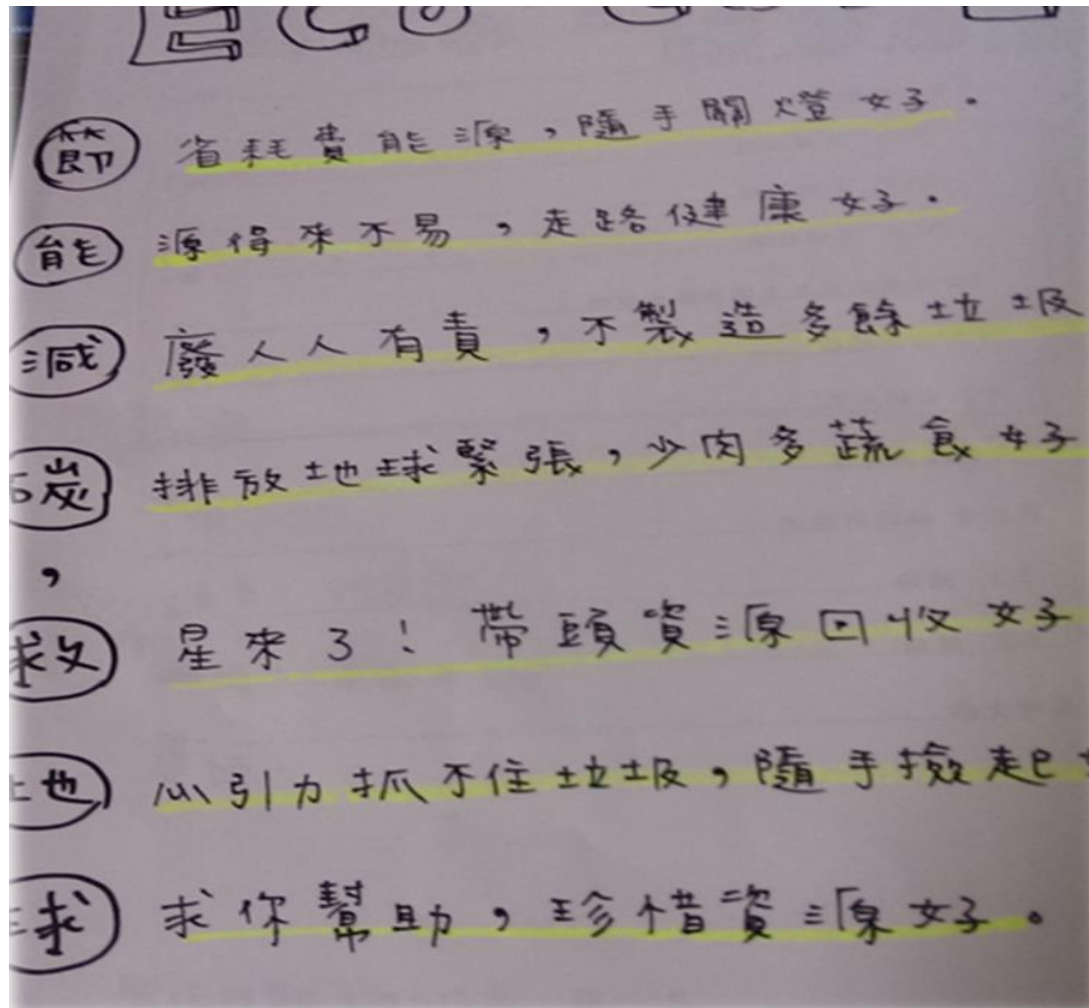 ECO
節 省耗費能源，隨手關燈好。
能 源得來不易，走路健康好。
減 廢人人有責，不製造多餘垃圾
碳 排放地球緊張，少肉多蔬食好
，
救 星來了！帶頭資源回收好
地 心引力抓不住垃圾，隨手撿起
球 求你幫助，珍惜資源好。